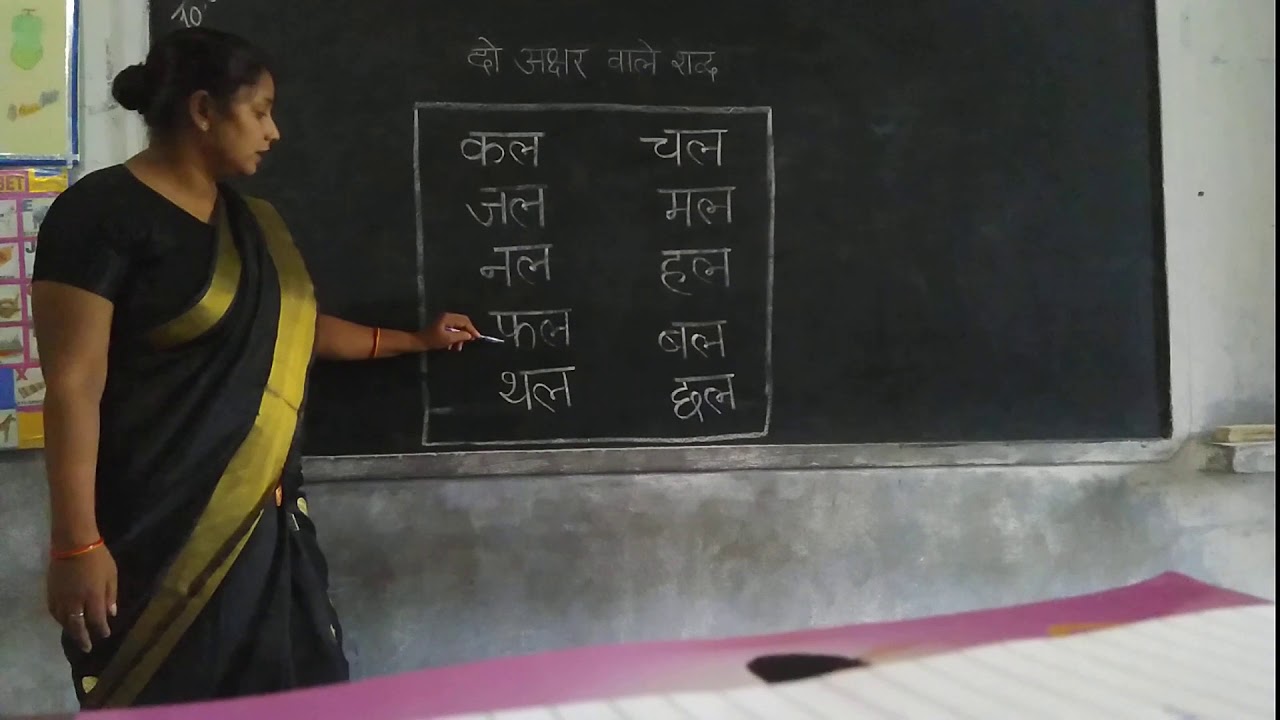 10
दो अक्षर वाले शब्द
कल चल
जल मल
नल हल
फल बल
थल छल
BET